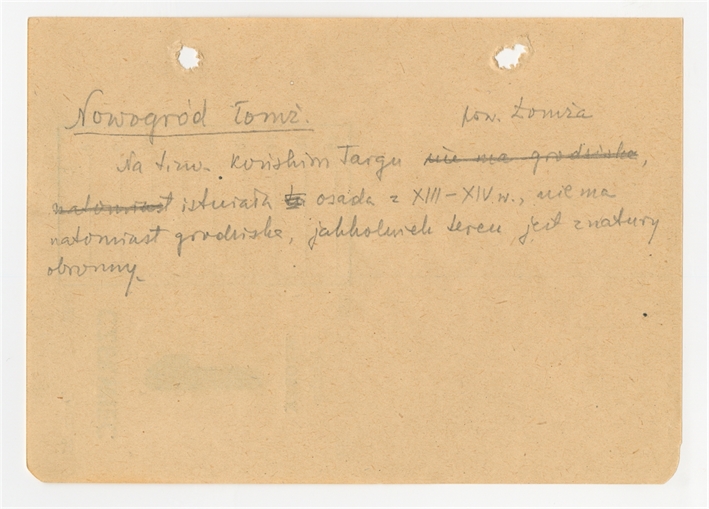 Nowogród Łomż. pow. Łomża
Na t.zw. Końskim Targu nie ma grodziska,
natomiast istniała osada z XIII-XIV w., nie ma
natomiast grodziska, jakkolwiek teren jest z natury
obronny.